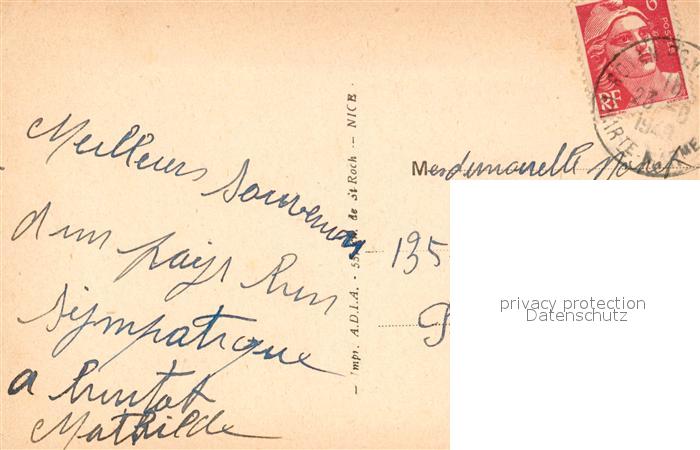 Meilleurs Souvenirs
d'un pays bien
sympatique
a bientot
Mathilde
Impr. A.D.I.A. - de St Roch - NICE
Mesdemoiselle
135
P
6
POSTES
RF
privacy protection
Datenschutz